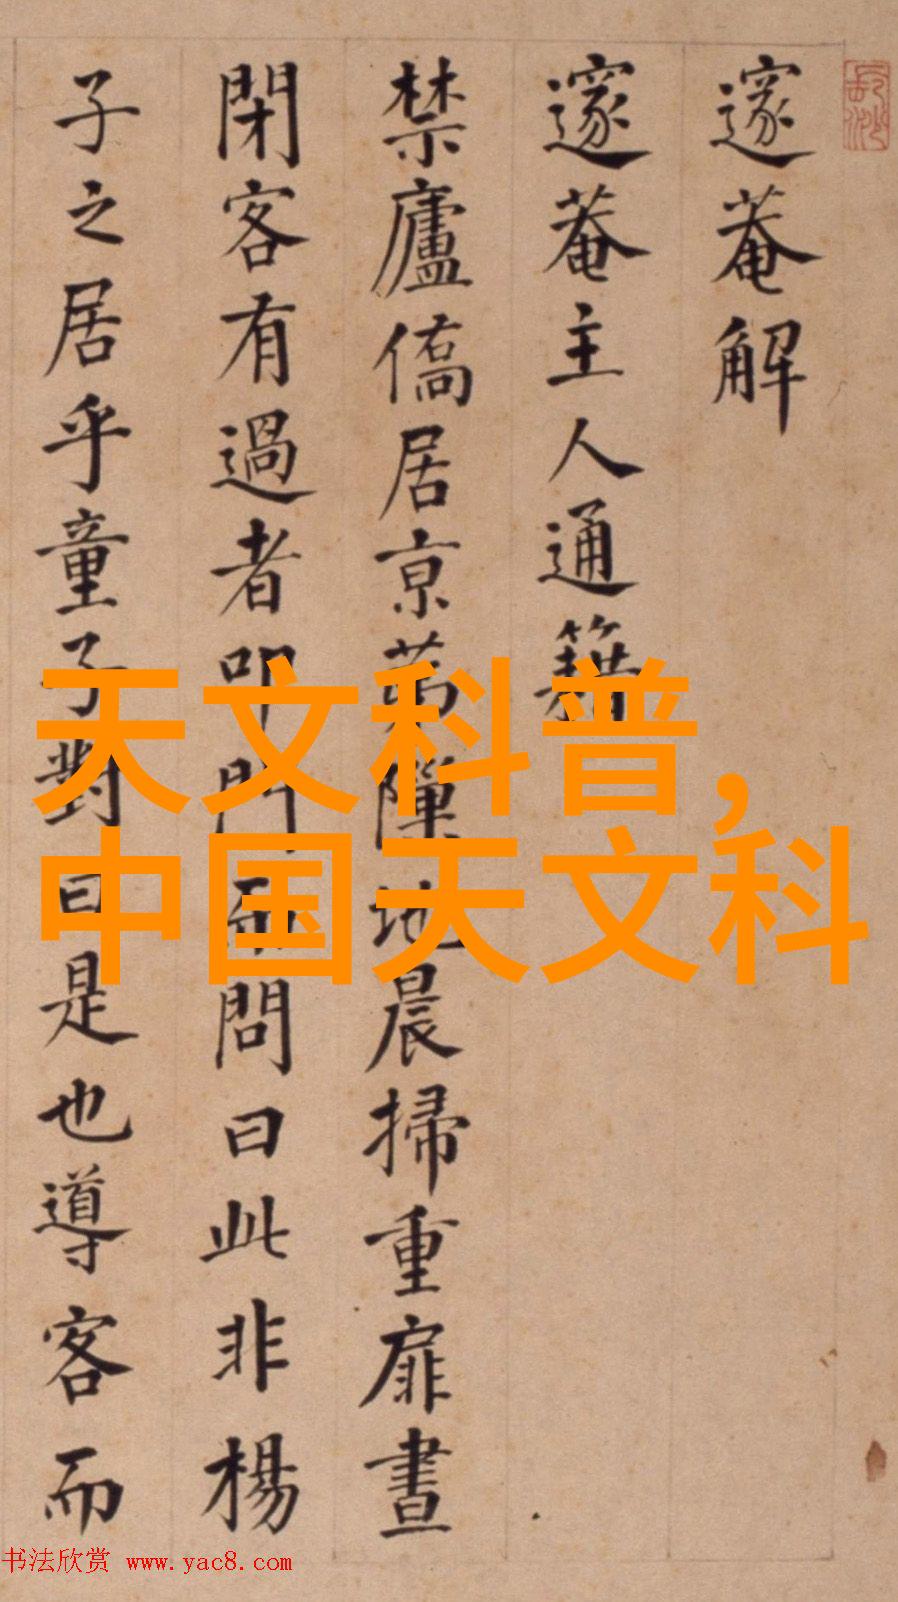 邃菴解
邃菴主人通籍
禁廬僑居京苐隟地晨掃重扉晝
閉客有過者叩門而問曰此非楊
子之居乎童子對曰是也導客而
天文科普，
中国天文科
书法欣赏 www.yac8.com